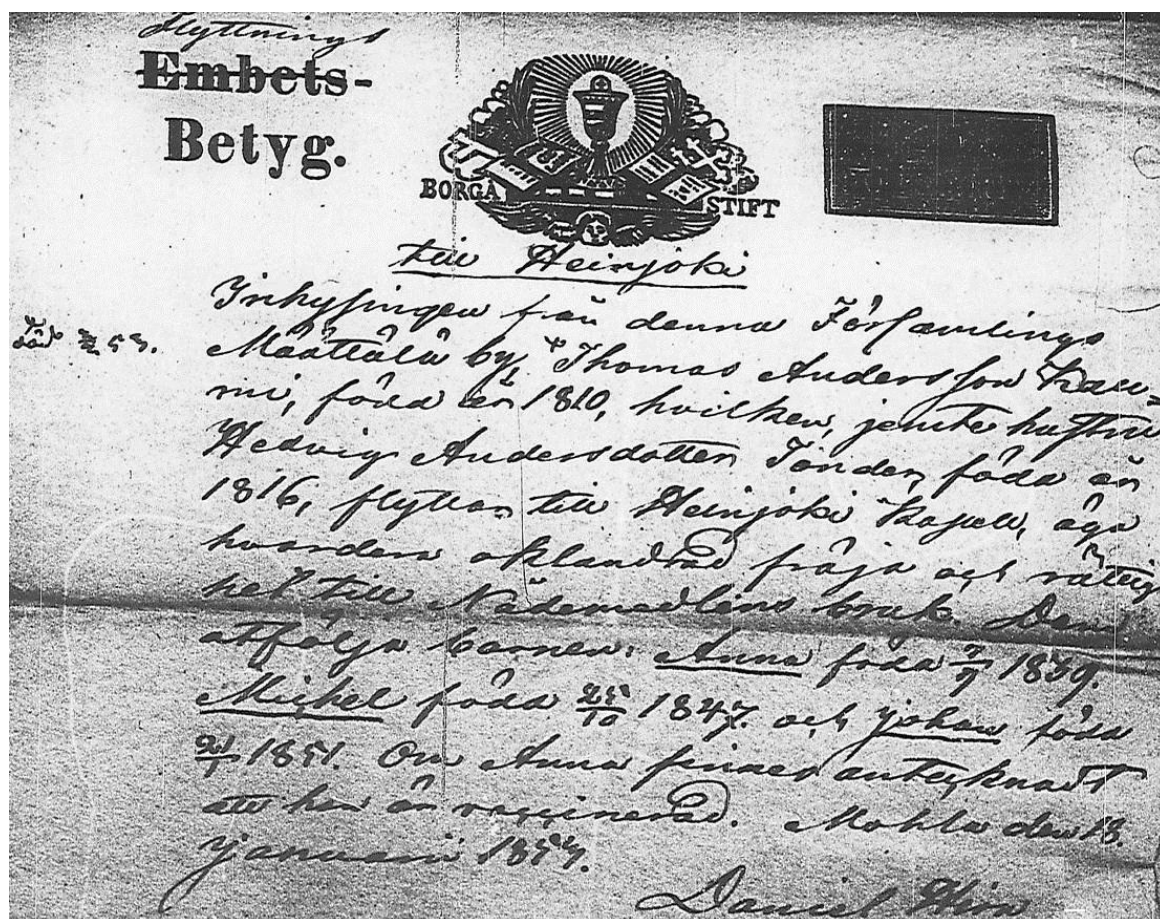 Flyttnings
Embets-
Betyg.
BORGÅ STIFT
till Heinjoki
Inhysingen från denna Församlings
Määttälä by, Thomas Andersson Kau-
mi, född år 1810, hvilken, jemte hustru
Hedvig Andersdotter född år
1816, flyttar till Heinjoki Kapell, äga
hvardera oklandrad fräjd och rättig-
het till Nådemedlens bruk. Dem
åtfölja barnen: Anna född 1839.
Michel född 25/10 1847. och Johan född
1851. Om Anna finnes antecknadt
att hon är vaccinerad. Mohla den 18.
januari 1857.
Daniel